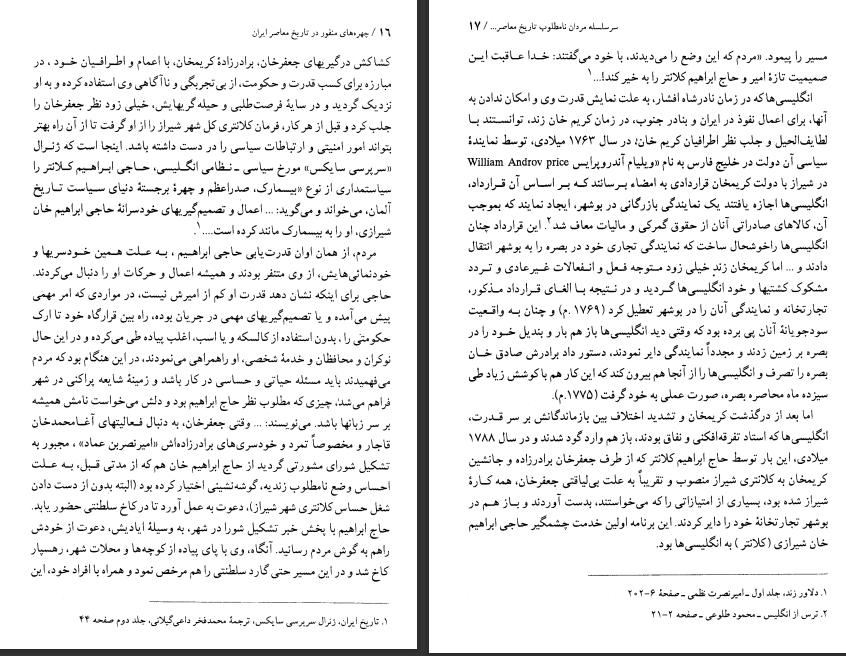 ۱۶ / چهره‌های منفور در تاریخ معاصر ایران
کشاکش درگیریهای جعفرخان، برادرزادهٔ کریمخان، با اعمام و اطرافیان خود ، در
مبارزه برای کسب قدرت و حکومت، از بی‌تجربگی و ناآگاهی وی استفاده کرده و به او
نزدیک گردید و در سایهٔ فرصت‌طلبی و حیله گریهایش، خیلی زود نظر جعفرخان را
جلب کرد و قبل از هر کار، فرمان کلانتری کل شهر شیراز را از او گرفت تا از آن راه بهتر
بتواند امور امنیتی و ارتباطات سیاسی را در دست داشته باشد. اینجا است که ژنرال
«سرپرسی سایکس» مورخ سیاسی ـ نظامی انگلیسی، حاجی ابراهیم کلانتر را
سیاستمداری از نوع «بیسمارک، صدراعظم و چهرهٔ برجستهٔ دنیای سیاست تاریخ
آلمان، می‌خواند و می‌گوید: ... اعمال و تصمیم‌گیریهای خودسرانهٔ حاجی ابراهیم خان
شیرازی، او را به بیسمارک مانند کرده است....۱
مردم، از همان اوان قدرت‌یابی حاجی ابراهیم ، به علت همین خودسریها و
خودنمائی‌هایش، از وی متنفر بودند و همیشه اعمال و حرکات او را دنبال می‌کردند.
حاجی برای اینکه نشان دهد قدرت او کم از امیرش نیست، در مواردی که امر مهمی
پیش می‌آمده و یا تصمیم‌گیریهای مهمی در جریان بوده، راه بین قرارگاه خود تا ارک
حکومتی را ، بدون استفاده از کالسکه و یا اسب، اغلب پیاده طی می‌کرده و در این حال
نوکران و محافظان و خدمهٔ شخصی، او راهمراهی می‌نمودند، در این هنگام بود که مردم
می‌فهمیدند باید مسئله حیاتی و حساسی در کار باشد و زمینهٔ شایعه پراکنی در شهر
فراهم می‌شد، چیزی که مطلوب نظر حاج ابراهیم بود و دلش می‌خواست نامش همیشه
بر سر زبانها باشد. می‌نویسند: ... وقتی جعفرخان، به دنبال فعالیتهای آغامحمدخان
قاجار و مخصوصاً تمرد و خودسری‌های برادرزاده‌اش «امیرنصربن عماد» ، مجبور به
تشکیل شورای مشورتی گردید از حاج ابراهیم خان هم که از مدتی قبل، به علت
احساس وضع نامطلوب زندیه، گوشه‌نشینی اختیار کرده بود (البته بدون از دست دادن
شغل حساس کلانتری شهر شیراز)، دعوت به عمل آورد تا در کاخ سلطنتی حضور یابد.
حاج ابراهیم با پخش خبر تشکیل شورا در شهر، به وسیلهٔ ایادیش، دعوت از خودش
راهم به گوش مردم رسانید. آنگاه، وی با پای پیاده از کوچه‌ها و محلات شهر، رهسپار
کاخ شد و در این مسیر حتی گارد سلطنتی را هم مرخص نمود و همراه با افراد خود، این
۱. تاریخ ایران، ژنرال سرپرسی سایکس، ترجمهٔ محمدفخر داعی‌گیلانی، جلد دوم صفحه ۴۴
سرسلسله مردان نامطلوب تاریخ معاصر... / ۱۷
مسیر را پیمود. «مردم که این وضع را می‌دیدند، با خود می‌گفتند: خدا عاقبت این
صمیمیت تازهٔ امیر و حاج ابراهیم کلانتر را به خیر کند!...۱
انگلیسی‌ها که در زمان نادرشاه افشار، به علت نمایش قدرت وی و امکان ندادن به
آنها، برای اعمال نفوذ در ایران و بنادر جنوب، در زمان کریم خان زند، توانستند با
لطایف‌الحیل و جلب نظر اطرافیان کریم خان، در سال ۱۷۶۳ میلادی، توسط نمایندهٔ
سیاسی آن دولت در خلیج فارس به نام «ویلیام آندروپرایس William Androv price
در شیراز با دولت کریمخان قراردادی به امضاء برسانند که بر اساس آن قرارداد،
انگلیسی‌ها اجازه یافتند یک نمایندگی بازرگانی در بوشهر، ایجاد نمایند که بموجب
آن، کالاهای صادراتی آنان از حقوق گمرکی و مالیات معاف شد۲. این قرارداد چنان
انگلیسی‌ها راخوشحال ساخت که نمایندگی تجاری خود در بصره را به بوشهر انتقال
دادند و ... اما کریمخان زند خیلی زود متوجه فعل و انفعالات غیرعادی و تردد
مشکوک کشتیها و خود انگلیسی‌ها گردید و در نتیجه با الغای قرارداد مذکور،
تجارتخانه و نمایندگی آنان را در بوشهر تعطیل کرد (۱۷۶۹ .م) و چنان به واقعیت
سودجویانهٔ آنان پی برده بود که وقتی دید انگلیسی‌ها باز هم بار و بندیل خود را در
بصره بر زمین زدند و مجدداً نمایندگی دایر نمودند، دستور داد برادرش صادق خان
بصره را تصرف و انگلیسی‌ها را از آنجا هم بیرون کند که این کار هم با کوشش زیاد طی
سیزده ماه محاصره بصره، صورت عملی به خود گرفت (۱۷۷۵.م).
اما بعد از درگذشت کریمخان و تشدید اختلاف بین بازماندگانش بر سر قدرت،
انگلیسی‌ها که استاد تفرقه‌افکنی و نفاق بودند، باز هم وارد گود شدند و در سال ۱۷۸۸
میلادی، این بار توسط حاج ابراهیم کلانتر که از طرف جعفرخان برادرزاده و جانشین
کریمخان به کلانتری شیراز منصوب و تقریباً به علت بی‌لیاقتی جعفرخان، همه کارهٔ
شیراز شده بود، بسیاری از امتیازاتی را که می‌خواستند، بدست آوردند و باز هم در
بوشهر تجارتخانهٔ خود را دایر کردند. این برنامه اولین خدمت چشمگیر حاجی ابراهیم
خان شیرازی (کلانتر ) به انگلیسی‌ها بود.
۱. دلاور زند، جلد اول ـ امیرنصرت نظمی ـ صفحهٔ ۶-۲۰۲
۲. ترس از انگلیس ـ محمود طلوعی ـ صفحه ۲-۲۱